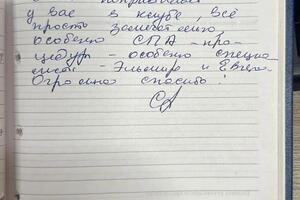 у вас в клубе, всё
просто замечательно,
особенно СПА - про-
цедур - особено специа-
листы - Эльмира и Евгения
Огромно спасибо!